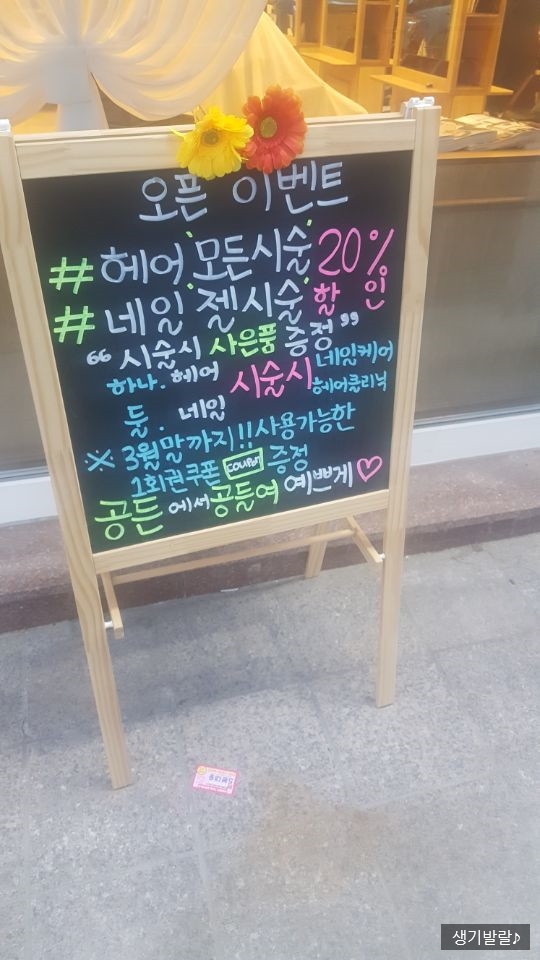 오픈 이벤트
# 헤어 '모든시술' 20%
# 네일 '젤시술' 할인
"시술시 사은품 증정"
하나. 헤어 시술시 네일케어
둘. 네일 헤어클리닉
※ 3월말까지!! 사용가능한
1회권쿠폰 COUPON 증정
공든에서 공들여 예쁘게♡
생기발랄♪